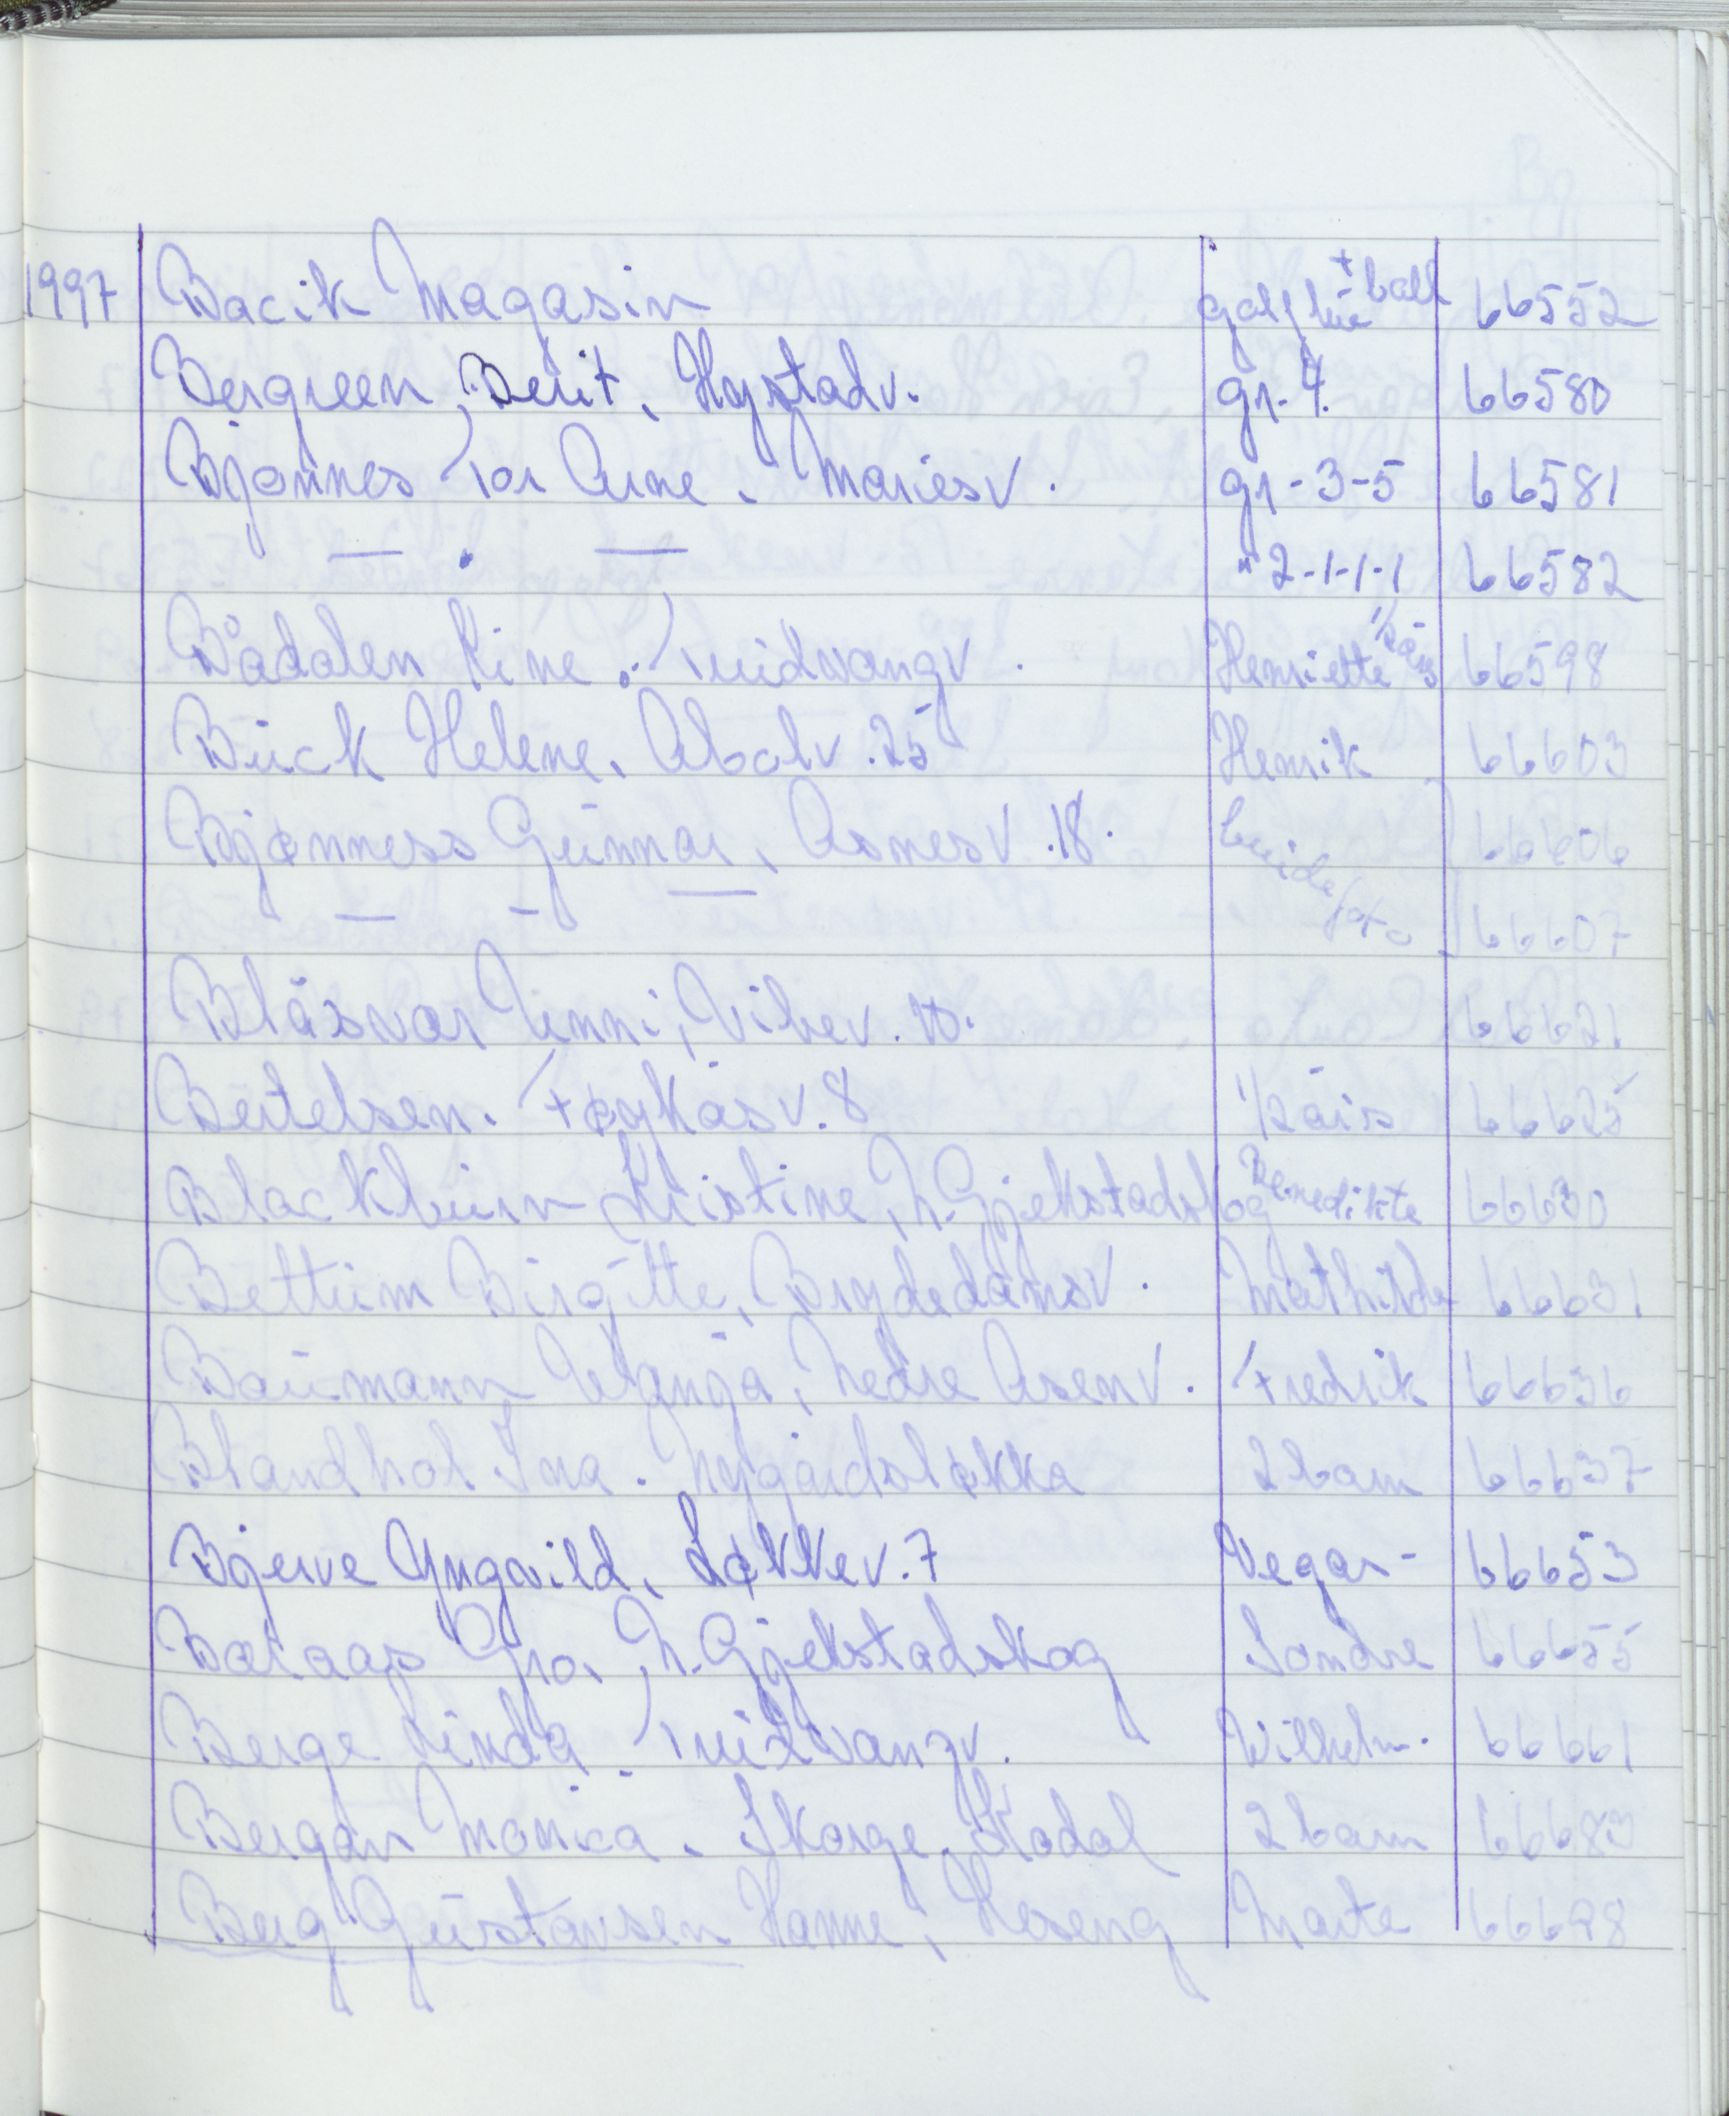 1997 Bacik Magasin golf lue + ball 66552
Bergreen, Berit, Hystadv. gr. 4. 66580
Bjønnes Tor Arne, Mariesv. gr - 3-5 66581
— . — " 2-1-1-1 66582
Bådalen Line, Tuidvangv. Henriette 1/2 års 66598
Buck Helene, Abolv. 25 Henrik 66603
Bjønness Gunnar, Åsnesv. 18. brudefoto 66606
— - — 66607
Blåsvær Unni, Vibev. 10. 66621
Bertelsen. Frøykåsv. 8 1/2 års 66625
Blackburn Kristine, N. Gjekstadskog Benedikte 66630
Bettum Birgitte, Brydedamsv. Mathilde 66631
Baumann Wanja, Nedre Åsenv. Fredrik 66636
Blandhol Ina. Nygårdsløkka 2 barn 66637
Bjerve Yngvild, Løkkev. 7 Vegar - 66653
Bataas Gro, N. Gjekstadskog Sondre 66655
Berge Linda. Tuidvangv. Wilhelm. 66661
Bergan Monica. Skorge, Kodal 2 barn 66683
Berg Gustavsen Hanne, Leseng Marte 66698